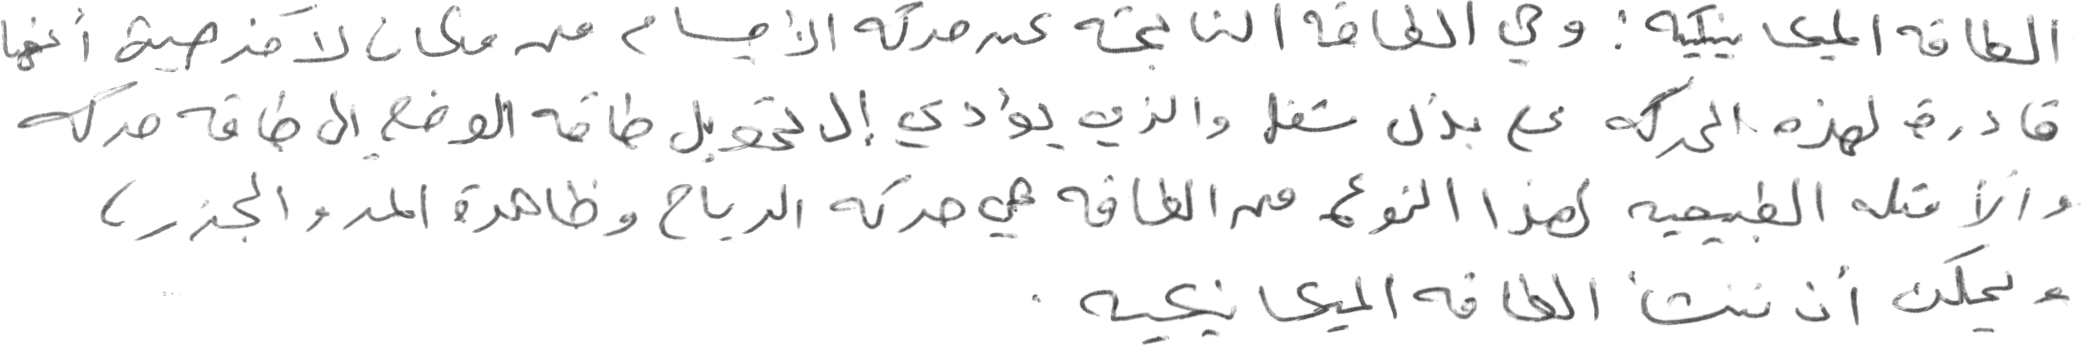 الطاقة الميكانيكية : وهي الطاقة الناتجة عن حركة الأجسام من مكان لآخر حيث أنها
قادرة لهذه الحركة على بذل شغل والذي يؤدي إلى تحويل طاقة الوضع إلى طاقة حركة
والأمثلة الطبيعية لهذا النوع من الطاقة هي حركة الرياح وظاهرة المد والجزر ،
ويمكن أن تنشأ الطاقة الميكانيكية .